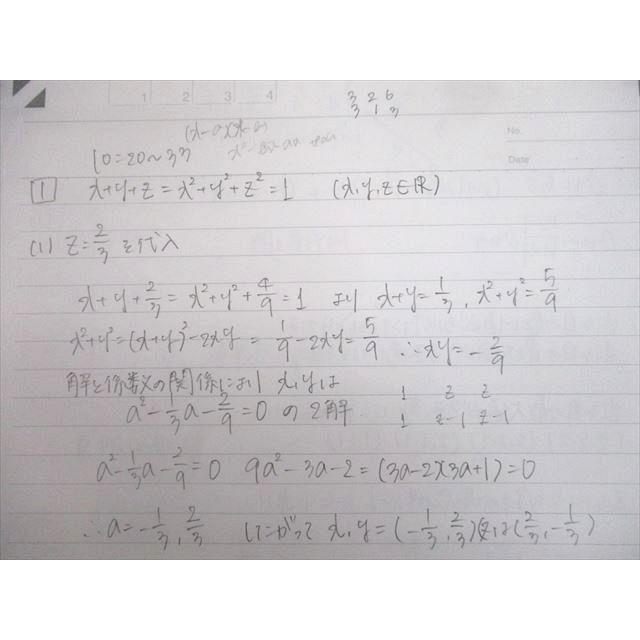 1 2 3 4
3 2 6
3 1 3
No.
Date
10=20~33
1 x+y+z=x²+y²+z²=1 (x,y,z∈ℝ)
(1) z=2/3を代入
x+y+2/3=x²+y²+4/9=1 より x+y=1/3, x²+y²=5/9
x²+y²=(x+y)²-2xy=1/9-2xy=5/9 ∴xy=-2/9
解と係数の関係により x,yは
a²-1/3a-2/9=0 の2解
1 z z
1 z-1 z-1
a²-1/3a-2/9=0 9a²-3a-2=(3a-2)(3a+1)=0
∴a=-1/3,2/3 したがって x,y=(-1/3,2/3)又は(2/3,-1/3)